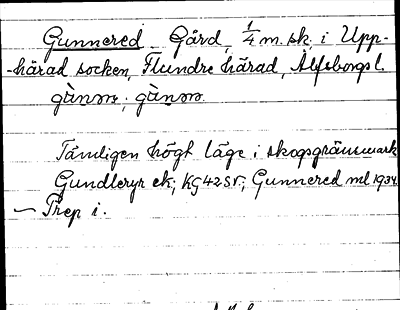 Gunnered Gård, 1/4 m. sk. i Upp-
-härad socken, Flundre härad, Älfsborgs l.
Tämligen högt läge i skogsgränsmark
ek; Kg 42 Sv.; Gunnered ml 1934
— Prep i.